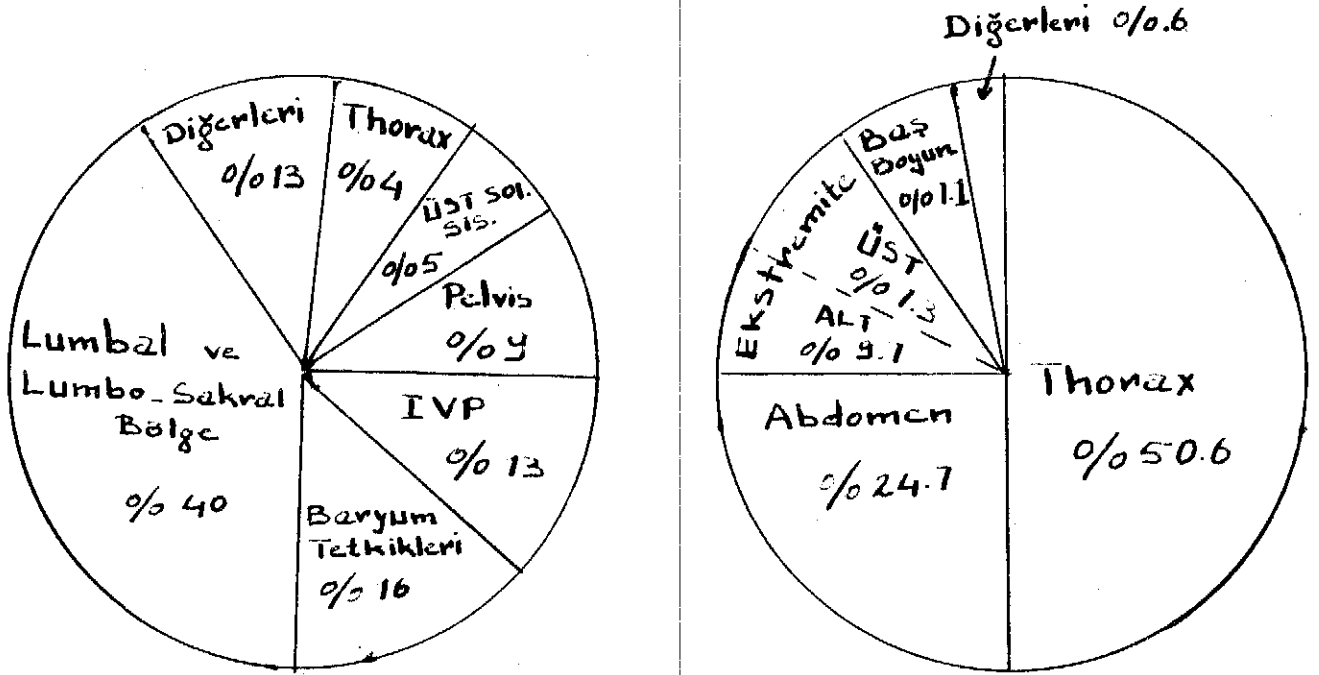 Diğerleri
%13
Thorax
%4
ÜST Sol.
Sis.
%5
Pelvis
%9
IVP
%13
Baryum
Tetkikleri
%16
Lumbal ve
Lumbo-Sakral
Bölge
%40
Diğerleri %.6
Baş
Boyun
%1.1
Ekstremite
ÜST
%1.3
ALT
Abdomen
%24.7
Thorax
%50.6